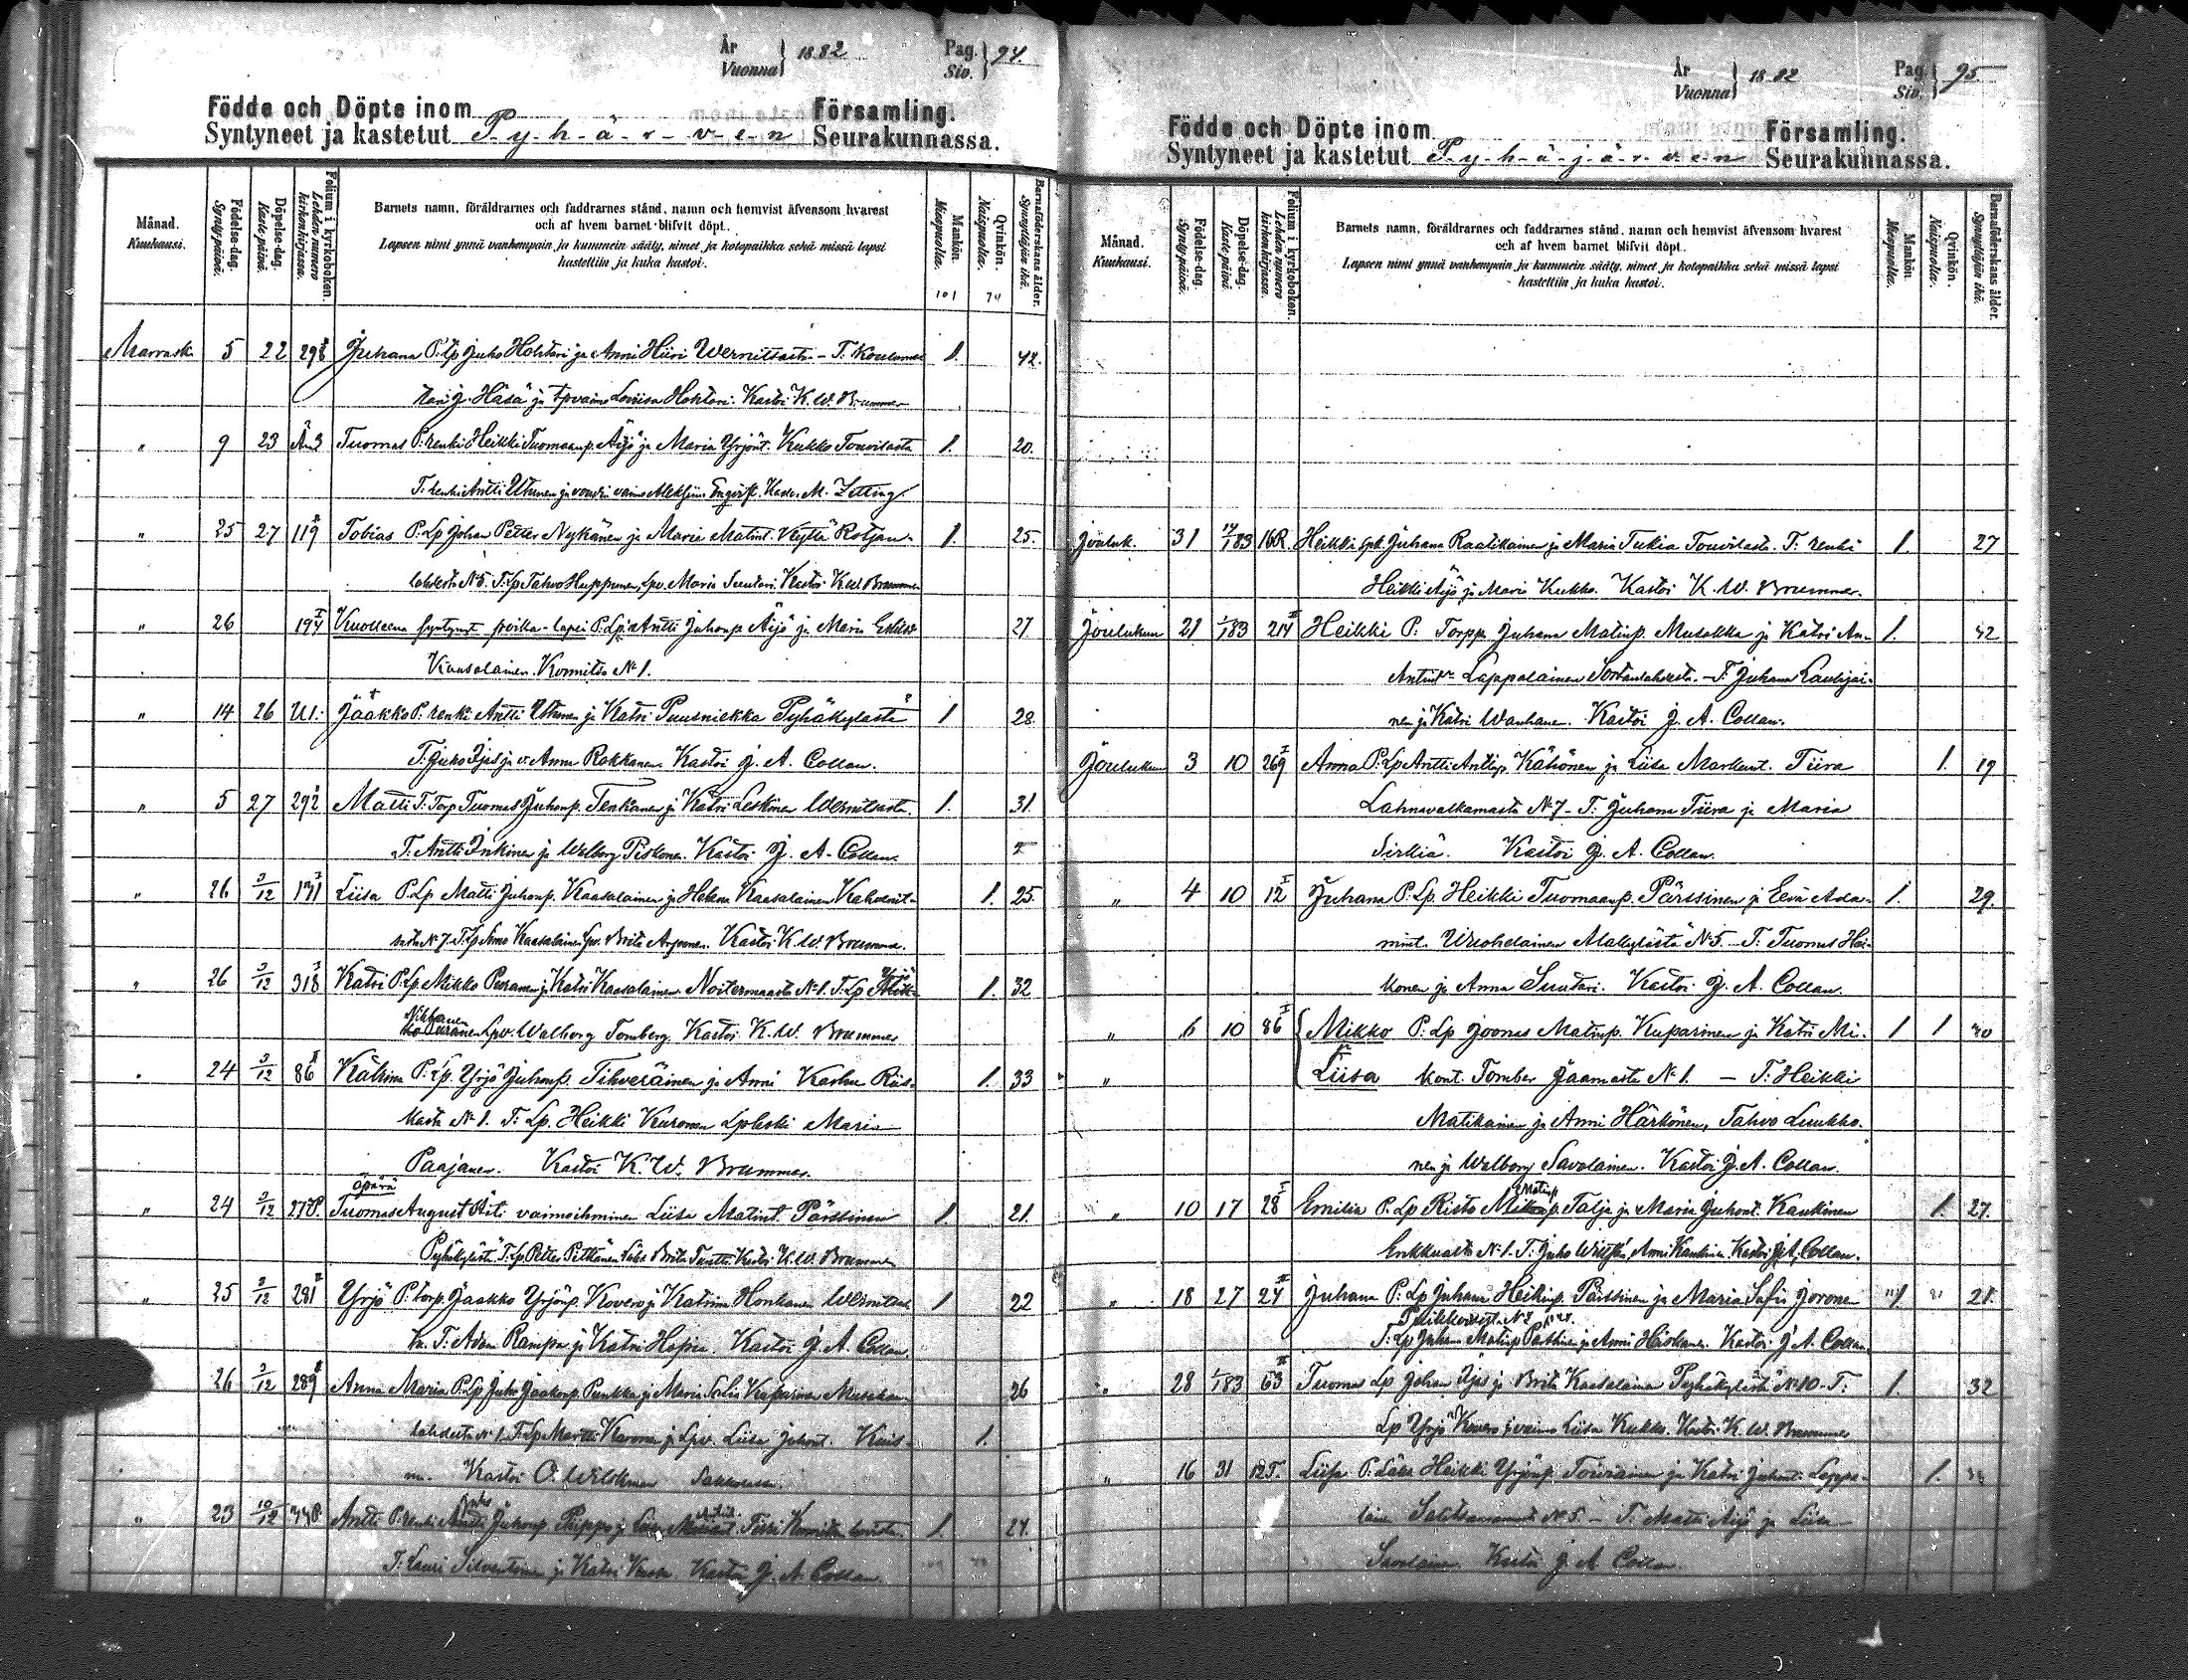 År
Vuonna } 1882
Pag.
Siv. } 94.
Födde och Döpte inom
Syntyneet ja kastetut P-y-h-ä-r-v-e-n
Församling.
Seurakunnassa.
Månad.
Kuukausi.
Födelse-dag.
Syntypäivä.
Döpelse-dag.
Kaste-päivä.
Folium i kyrkoboken.
Lehden numero kirkonkirjassa.
Barnets namn, föräldrarnes och faddrarnes stånd, namn och hemvist äfvensom hvarest
och af hvem barnet blifvit döpt.
Lapsen nimi ynnä vanhempain ja kummein sääty, nimet ja kotopaikka sekä missä lapsi
kastettiin ja kuka kastoi.
Mankön.
Miespuolia.
Qvinkön.
Naispuolia.
Barnaföderskans ålder.
Synnyttäjän ikä.
101 74
Marrask. 5 22 298 Juhana P. Lp Juho Hohtari ja Anni Hiiri Wernitsasta - T: Koulumes 1. 42.
tari J. Häsä ja Lp vaimo Loviisa Hohtari. Kastoi K. W. Brummer
" 9 23 Än3 Tuomas P. renki Heikki Tuomaanp. Äijö ja Maria Yrjönt. Kukko Touvilasta 1. 20.
T. renki Antti Uthunen ja vaimo M. Zetting.
" 25 27 119 Tobias P. Lp Johan Petter Nykänen ja Maria Matint. Kyttä Rotjan- 1. 25.
lahdesta N:5. T. Lp Tahvo Huppunen, Lpv. Maria Suutari Kastoi K. W. Brummer
" 26 194 Kuolleena syntynyt poika-lapsi P. Lp Antti Juhonp. Äijö ja Maria 27.
Kaasalainen. Konnitsa N:1.
" 14 26 Ut. Jaakko P. renki Antti Uthunen ja Katri Puusniekka Pyhäkylästä 1 28.
T. Juho Äjes ja v. Anna Rokkanen. Kastoi J. A. Collan.
" 5 27 292 Matti P. Torp Tuomas Juhonp. Tenkanen ja Katri Leskinen Wernitsasta. 1. 31.
T. Antti Inkinen ja Walborg Piskonen. Kastoi J. A. Collan.
" 26 3/12 171 Liisa P. Lp Matti Juhonp. Kaasalainen ja Helena Kaasalainen Kahvenit- 1. 25.
sasta N:7. T. Lp Simo Kaasalainen Lpv. Brita Arponen. Kastoi K. W. Brummer.
" 26 3/12 318 Katri P. Lp Mikko Peuranen ja Katri Kaasalainen Noitermaasta N:1. T. Lp Yrjö 1. 32
Nikkanen Lpv. Walborg Tomberg. Kastoi K. W. Brummer
" 24 3/12 86 Katrina P. Lp. Yrjö Juhonp. Tihveräinen ja Anni Karhu Riis- 1. 33
kasta N:1. T. Lp. Heikki Kuronen Lpleski Maria
Paajanen. Kastoi K. W. Brummer.
äpärä
" 24 3/12 27P. Tuomas August Äiti vaimoihminen Liisa Matint. Pärssinen 1. 21.
Pyhäkylästä T. Lp. Petter Pitkänen Brita Kastoi K. W. Brummer
" 25 3/12 281 Yrjö P. torp. Jaakko Yrjönp. Kovero ja Katrina Honkanen Wernitsas- 1 22
ta. T. Adam Rampa ja Katri Hapia. Kastoi J. A. Collan.
" 26 3/12 289 Anna Maria P. Lp Juho Jaakonp. Punkka ja Maria Kuparinen Musakan- 26
lahdesta N:1. T. Lp Martti Karonen ja Lpv. Liisa Johant. Kais- 1.
nu. Kastoi O. Wildman Sakkolassa.
" 23 10/12 Antti P. renki Juhonp. Piippo ja 1. 24.
T. Lauri Silventoinen ja Katri Kastoi J. A. Collan.
År
Vuonna } 1882
Pag.
Siv. } 95
Födde och Döpte inom
Syntyneet ja kastetut P-y-h-ä-j-ä-r-v-e-n
Församling.
Seurakunnassa.
Månad.
Kuukausi.
Födelse-dag.
Syntypäivä.
Döpelse-dag.
Kaste-päivä.
Folium i kyrkoboken.
Lehden numero kirkonkirjassa.
Barnets namn, föräldrarnes och faddrarnes stånd, namn och hemvist äfvensom hvarest
och af hvem barnet blifvit döpt.
Lapsen nimi ynnä vanhempain ja kummein sääty, nimet ja kotopaikka sekä missä lapsi
kastettiin ja kuka kastoi.
Mankön.
Miespuolia.
Qvinkön.
Naispuolia.
Barnaföderskans ålder.
Synnyttäjän ikä.
Jouluk. 31 14/1 83 16R. Heikki Juhana Raatikainen ja Maria Tukia Touvilasta. T. renki 1. 27
Heikki Äijö ja Maria Kukko. Kastoi K. W. Brummer.
Joulukuu 21 1/1 83 214 Heikki P. Torpp. Juhana Matinp. Musakka ja Katri An- 1. 42
Antint. Lappalainen Sortanlahdesta. - T. Juhana Lavikai-
nen ja Katri Wanhanen. Kastoi J. A. Collan.
Joulukuu 3 10 269 Anna P. Lp Antti Antinp. Kähönen ja Liisa Markunt. Tiira 1. 19
Lahnavalkamasta N:7 - T: Juhana Tiira ja Maria
Sirkiä. Kastoi J. A. Collan.
" 4 10 12 Juhana P. Lp. Heikki Tuomaanp. Pärssinen ja Eeva Ada- 1. 29.
mint. Wuohelainen Alakylästä N:5. - T: Tuomas Hei-
konen ja Anna Suutari. Kastoi J. A. Collan.
" 6 10 86 Mikko P. Lp Joonas Matinp. Kuparinen ja Katri Mi- 1 1 40
" Liisa kont. Tomber Jaamasta N:1. - T: Heikki
Matikainen ja Anni Härkönen, Tahvo Luukko-
nen ja Walborg Savolainen. Kastoi J. A. Collan.
" 10 17 28 Emilia P. Lp Risto Matinp. Talja ja Maria Juhont. Kaukinen 1. 27.
Enkkualta N:1. T: Juho Anni Kaukinen Kastoi J. A. Collan.
" 18 27 24 Juhana P. Lp Juhana Heikinp. Pärssinen ja Maria Sofia Joronen 1 21.
T: Lp Juhana Matinp. ja Anni Heiskanen. Kastoi J. A. Collan
" 28 1/1 83 63 Tuomas Lp Johan Äjes ja Brita Kaasalainen Pyhäkylästä N:10. - T: 1. 32
Lp Yrjö Kovero ja vaimo Liisa Kukko. Kastoi K. W. Brummer
" 16 31 12T. Liisa P. Heikki Yrjönp. Toiviainen ja Katri Juhont. Lappa- 1.
lainen N:5. - T. Matti Äijö ja Liisa
Savolainen. Kastoi J. A. Collan.